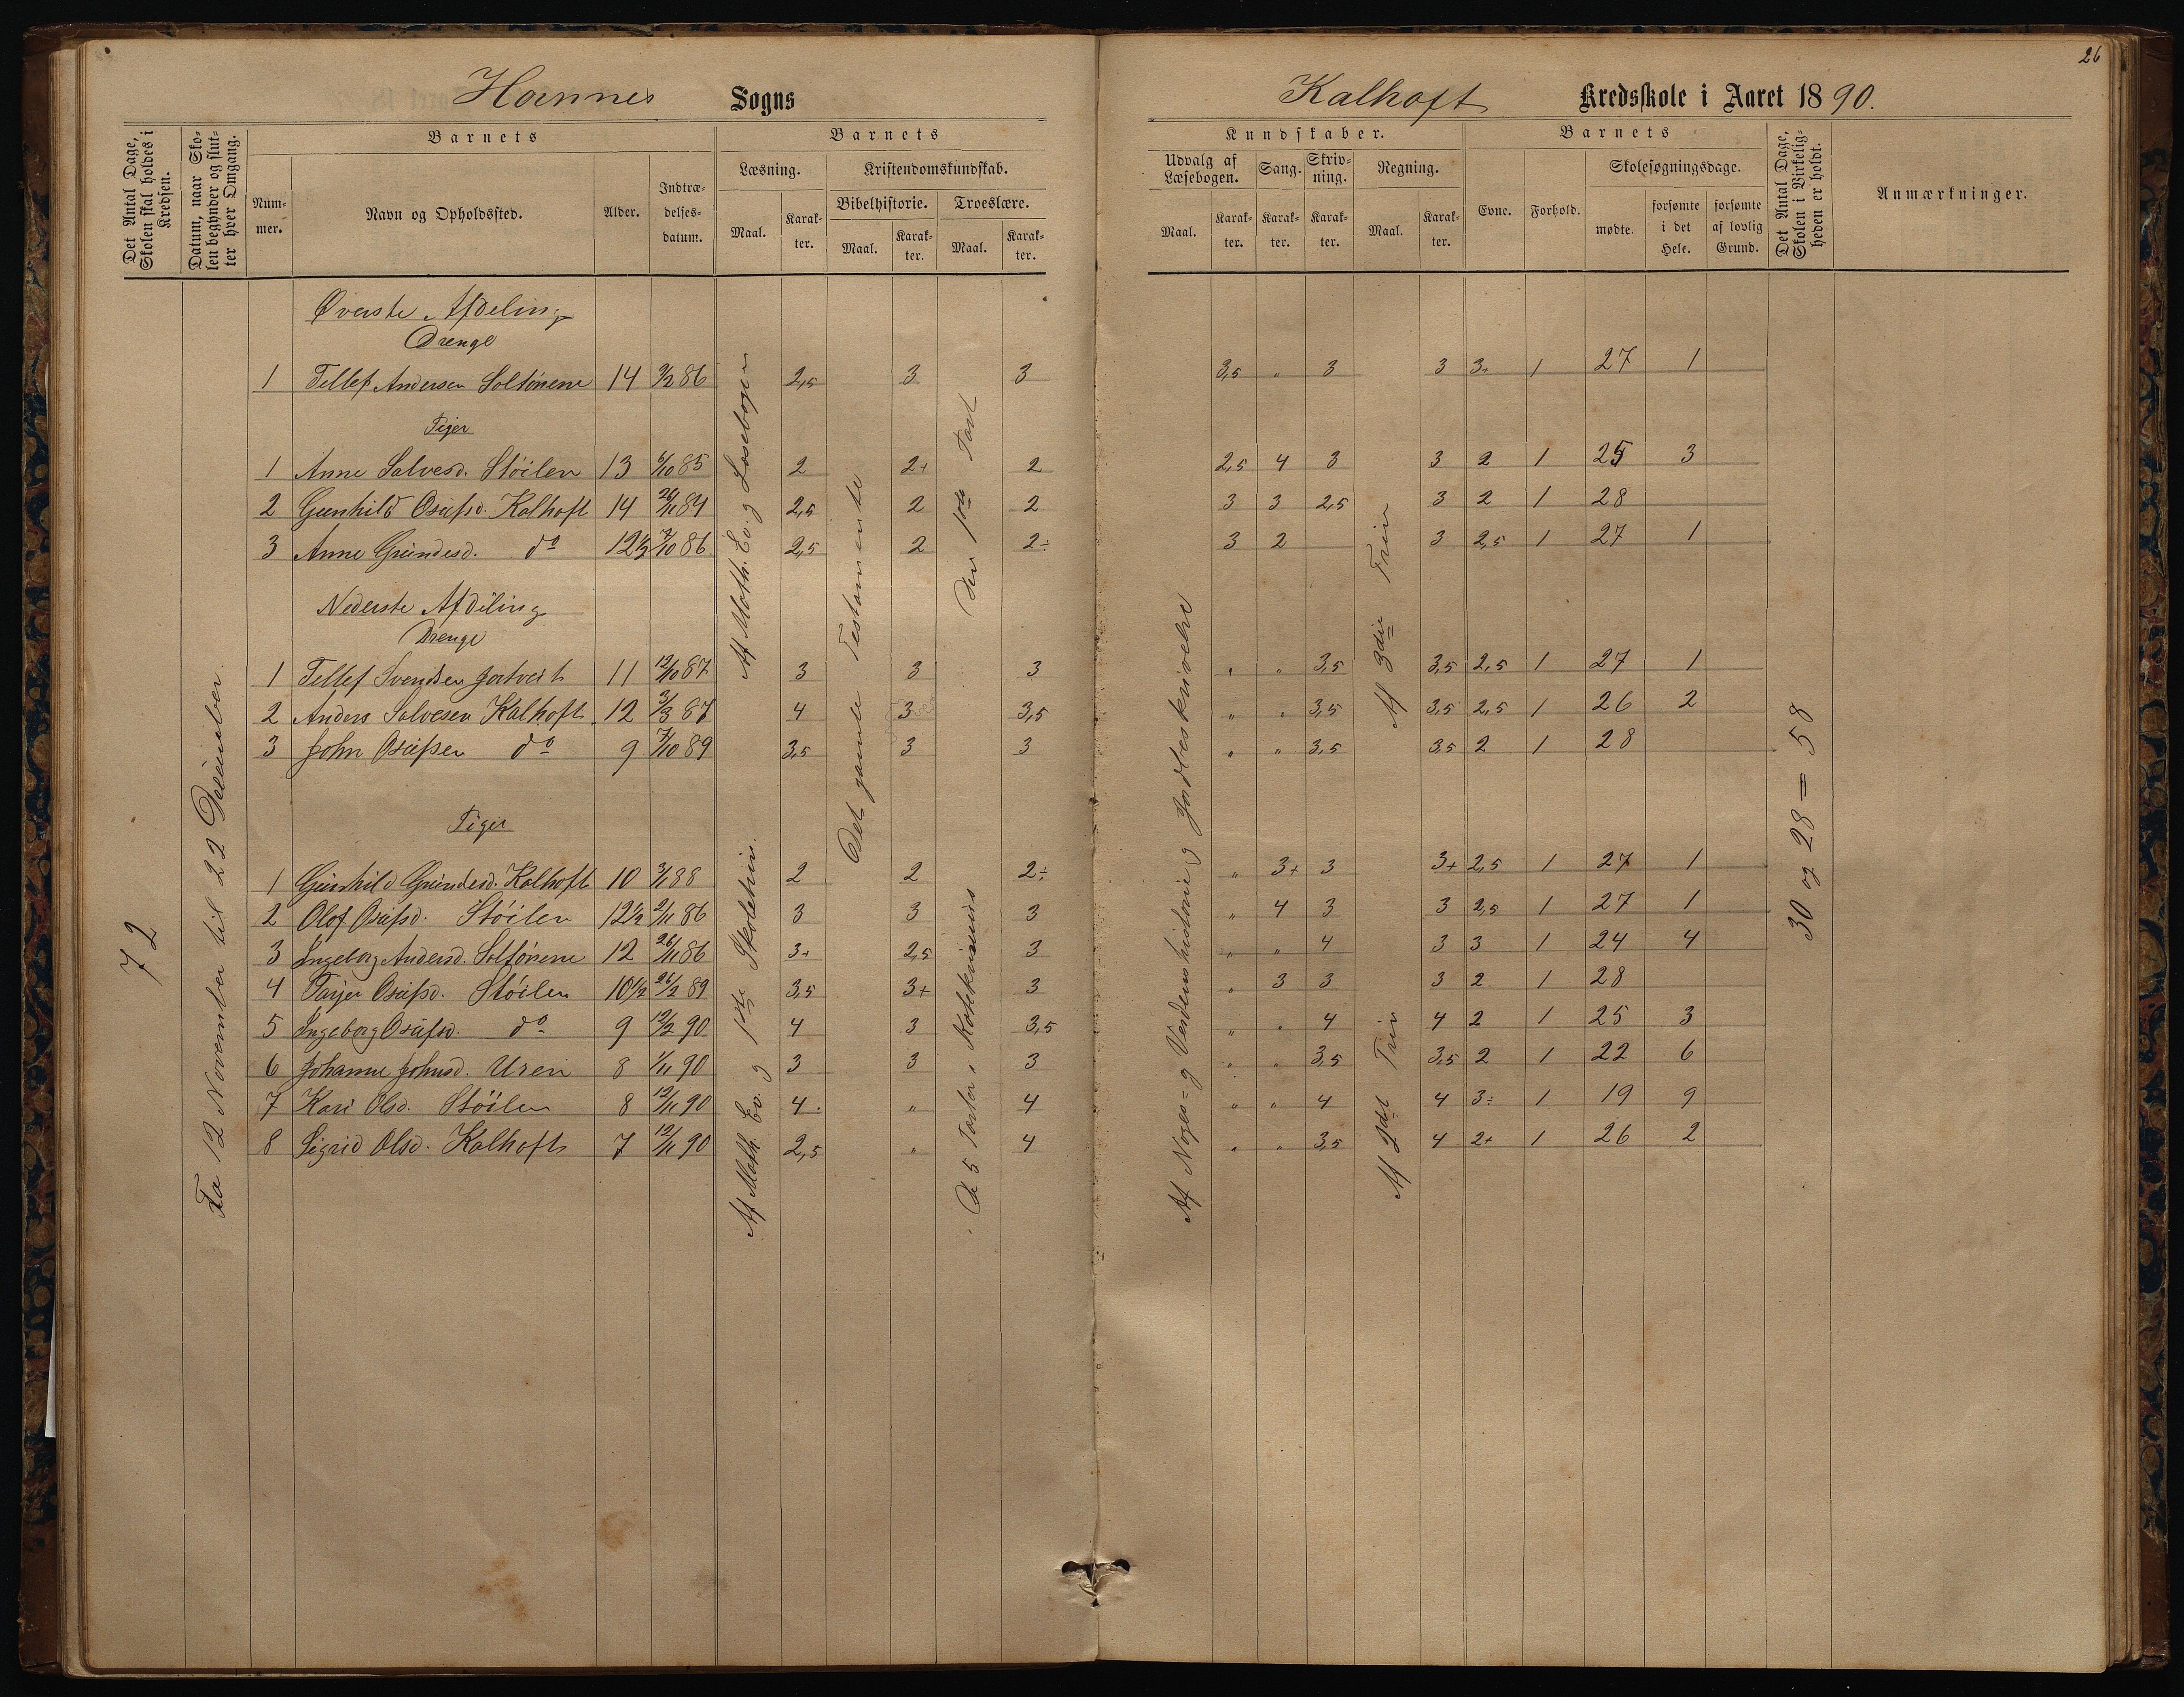 26
Hornnes Sogns
Kalhoft Kredsskole i Aaret 1890.
Det Antal Dage, Skolen skal holdes i Kredsen.
Datum, naar Skolen begynder og slutter hver Omgang.
Barnets
Nummer.
Navn og Opholdssted.
Alder.
Indtrædelses-datum.
Barnets
Læsning.
Maal.
Karakter.
Kristendomskundskab.
Bibelhistorie.
Maal.
Karakter.
Troeslære.
Maal.
Karakter.
Kundskaber.
Udvalg af Læsebogen.
Maal.
Karakter.
Sang.
Karakter.
Skrivning.
Karakter.
Regning.
Maal.
Karakter.
Barnets
Evne.
Forhold.
Skolesøgningsdage.
mødte.
forsømte i det Hele.
forsømte af lovlig Grund.
Det Antal Dage, Skolen i Virkeligheden er holdt.
Anmærkninger.
72
Fra 12 November til 22 Desember
Af Math. Ev. og Læsebogen
Af Math Ev. og 1ste Skoletrin.
Det gamle Testamente
Den 1ste Part
De 5 Parter i Katekismus
Af Noges- og Verdenshistorie og Jordbeskrivelse
Af 3die Trin
Af 2det Trin
30 og 28 = 58
Øverste Afdeling
Drenge
1 Tellef Andersen Soltönene 14 9/2 86 2,5 3 3 3,5 " 3 3 3+ 1 27 1
Piger
1 Anne Salvesd. Stöilen 13 6/10 85 2 2+ 2 2,5 4 3 3 2 1 25 3
2 Gunhild Osufsd. Kalhoft 14 26/11 84 2,5 2 2 3 3 2,5 3 2 1 28
3 Anne Gundesd. do 12½ 7/10 86 2,5 2 2÷ 3 2 3 2,5 1 27 1
Nederste Afdeling
Drenge
1 Tellef Svendsen Jortveit 11 12/10 87 3 3 3 " " 3,5 3,5 2,5 1 27 1
2 Anders Salvesen Kalhoft 12 3/3 87 4 3 3,5 " " 3,5 3,5 2,5 1 26 2
3 John Osufsen do 9 7/10 89 3,5 3 3 " " 3,5 3,5 2 1 28
Piger
1 Gunhild Gundesd. Kalhoft 10 3/1 88 2 2 2÷ " 3+ 3 3+ 2,5 1 27 1
2 Olof Osufsd. Stöilen 12½ 2/11 86 3 3 3 " 4 3 3 2,5 1 27 1
3 Ingeborg Andersd. Soltönene 12 26/11 86 3+ 2,5 3 " " 4 3 3 1 24 4
4 Tarjer Osufsd. Stöilen 10½ 26/2 89 3,5 3+ 3 " 3 3 3 2 1 28
5 Ingeborg Osufsd. do 9 12/2 90 4 3 3,5 " " 4 4 2 1 25 3
6 Johanne Johnsd. Uren 8 1/11 90 3 3 3 " " 3,5 3,5 2 1 22 6
7 Kari Olsd. Stöilen 8 12/11 90 4 " 4 " " 4 4 3÷ 1 19 9
8 Sigrid Olsd. Kalhoft 7 12/11 90 2,5 " 4 " " 3,5 4 2+ 1 26 2